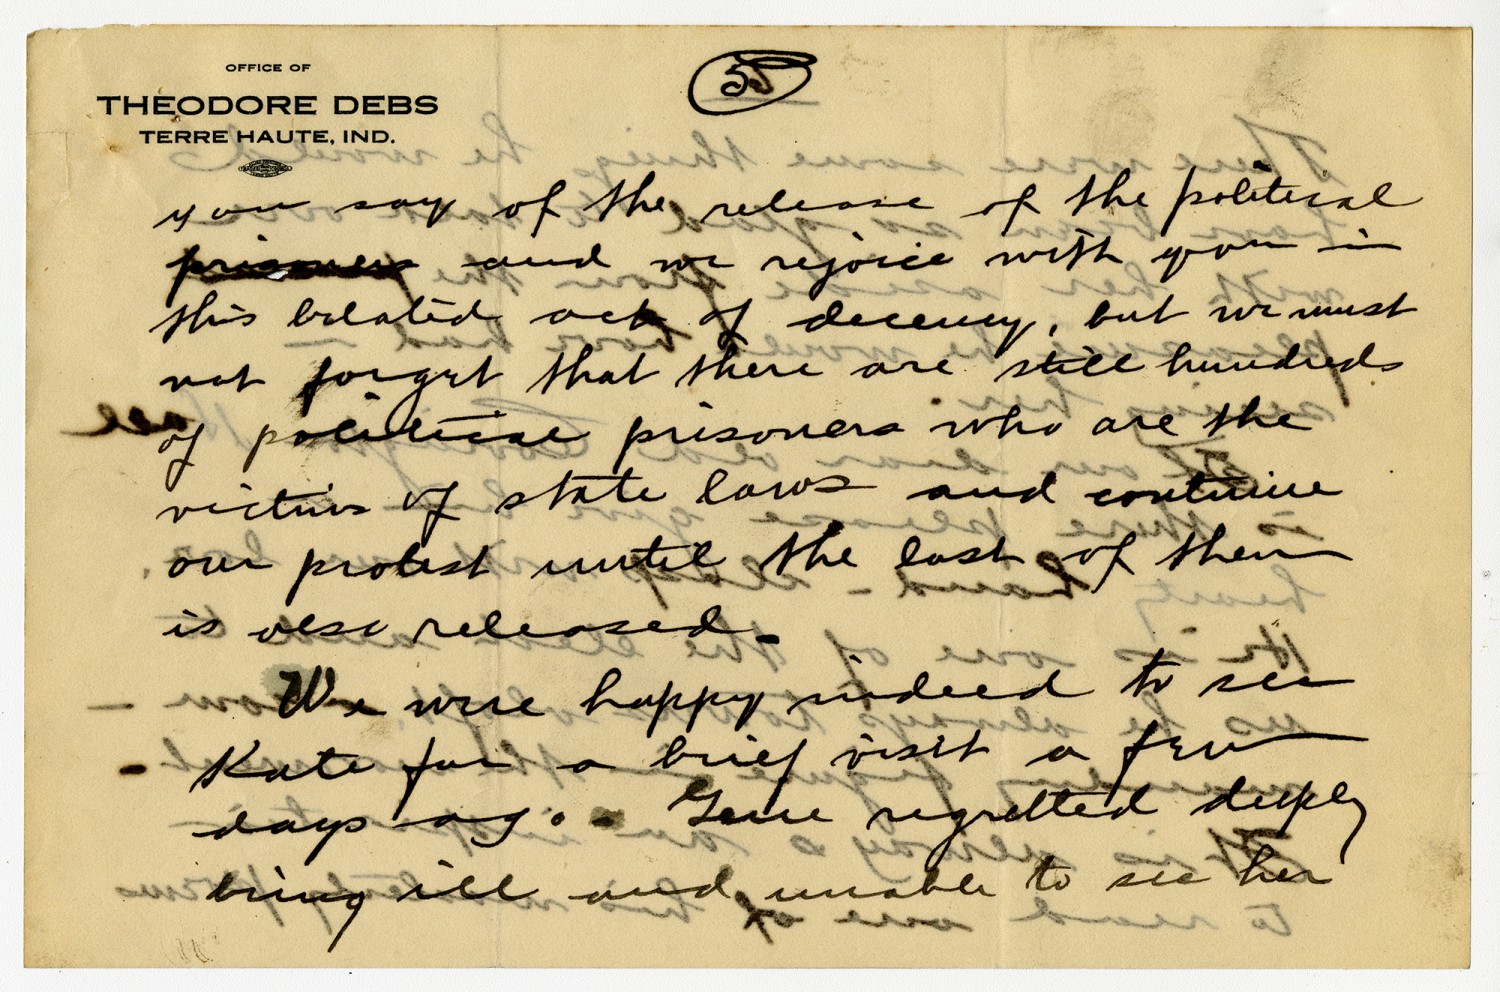 OFFICE OF
THEODORE DEBS
TERRE HAUTE, IND.
5
you say of the release of the political
prisoners and we rejoice with you in
this belated act of decency, but we must
not forget that there are still hundreds
of political prisoners who are the
victims of state laws and continue
our protest until the last of them
is also released.
We were happy indeed to see
Kate for a brief visit a few
days ago. Gene regretted deeply
being ill and unable to see her